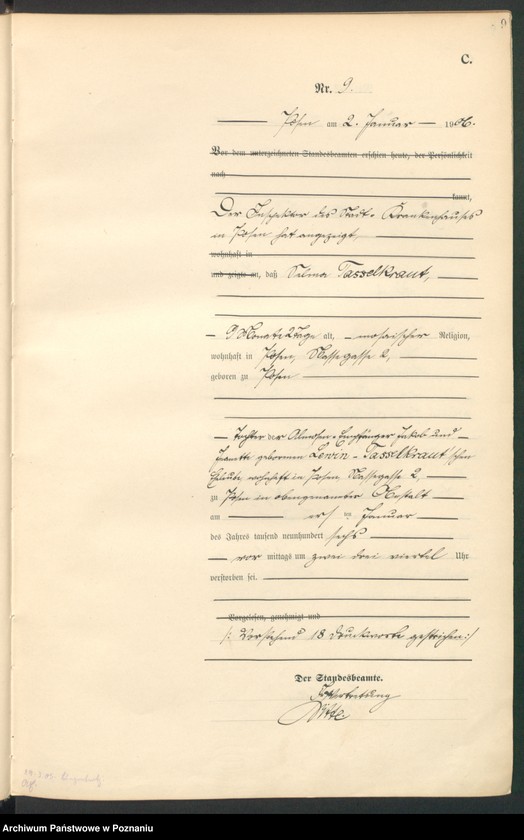 9
C.
Nr. 9.
Posen am 2. Januar 1906.
Vor dem unterzeichneten Standesbeamten erschien heute, der Persönlichkeit
nach
kannt,
Der Inspektor des Stadt-Krankenhauses
in Posen hat angezeigt,
wohnhaft in
und zeigte an, daß Selma Tasselkraut,
9 Monate 2 Tage alt, mosaischer Religion,
wohnhaft in Posen, Nassegasse 2,
geboren zu Posen
Tochter der Almosen-Empfänger Jakob und
geborenen Lewin-Tasselkraut'schen
Eheleute, wohnhaft in Posen, Nassegasse 2,
zu Posen in obengenannter Anstalt
am ersten Januar
des Jahres tausend neunhundert sechs
vor mittags um zwei drei viertel Uhr
verstorben sei.
Vorgelesen, genehmigt und
/: Vorstehend 18 Druckworte gestrichen :/
Der Standesbeamte.
In Vertretung
Witte
Archiwum Państwowe w Poznaniu